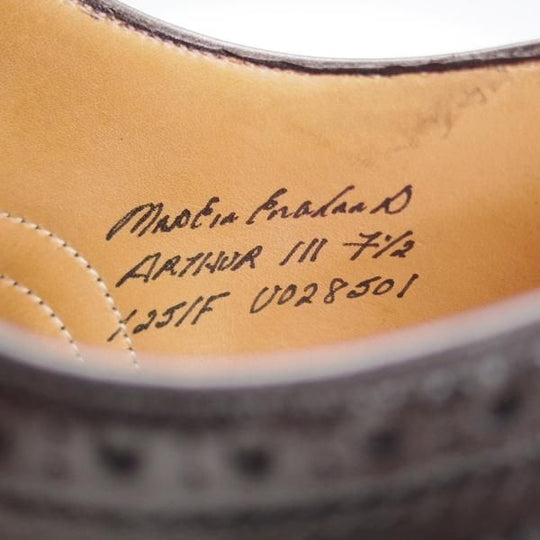 Made in England
ARTHUR III 7½
125/F U028501